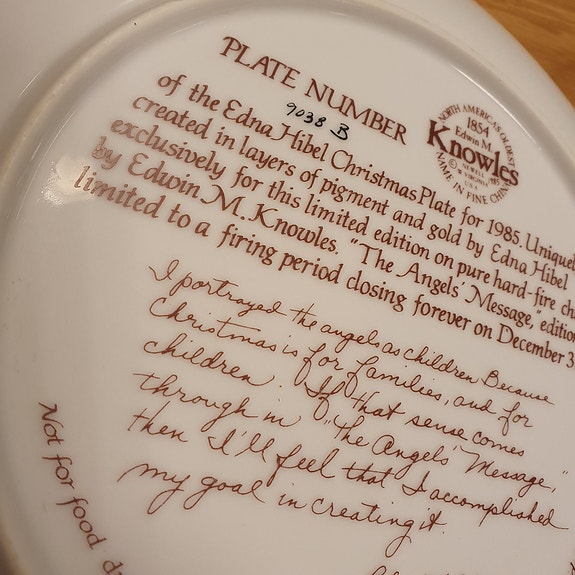 PLATE NUMBER
9038 B
of the Edna Hibel Christmas Plate for 1985. Uniquel
created in layers of pigment and gold by Edna Hibel
exclusively for this limited edition on pure hard-fire chi
by Edwin M. Knowles. "The Angels' Message," edition
limited to a firing period closing forever on December 3
NORTH AMERICA'S OLDEST
1854
Edwin M.
Knowles
NEWELL
W. VIRGINIA
U.S.A.
NAME IN FINE CHINA
I portrayed the angels as children Because
Christmas is for families, and for
children. If that sense comes
through in "The Angels' Message,"
then I'll feel that I accomplished
my goal in creating it.
Not for food